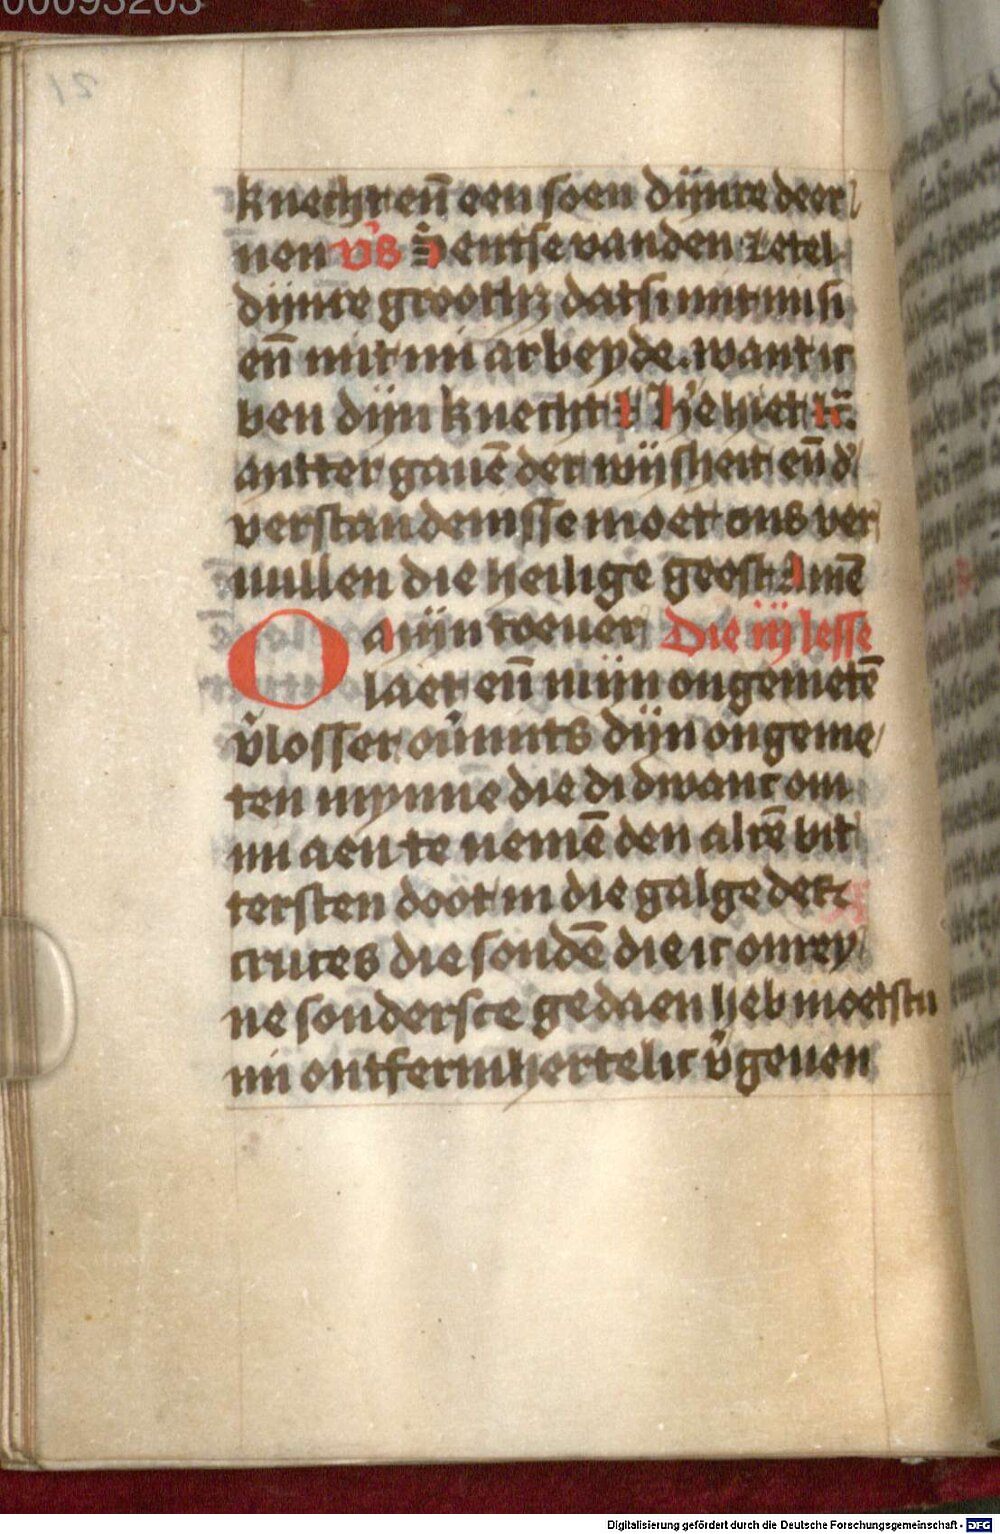 00093203
21
knecht en̄ een soen dijnre deer
nen vs̓ Sentse van den zetel
dijnre grootħ dat si mit mi si
en̄ mit mi arbeyde. want ic
ben dijn knecht
gauē der wijsheit en̄ d̓
verstandenisse moet ons ver
uullen die heilige geest Amē
O mijn toeuer Die iij lesse
laet en̄ mijn ongemetē
v̓losser ou̓mits dijn ongeme
ten mynne die di dwanc om
mi aen te nemē den alrē bit
tersten doot in die galge des
cruces die sondē die ic onrey
ne sonderste gedaen heb moetstu
mi ontfermhertelic v̓geuen
Digitalisierung gefördert durch die Deutsche Forschungsgemeinschaft - DFG